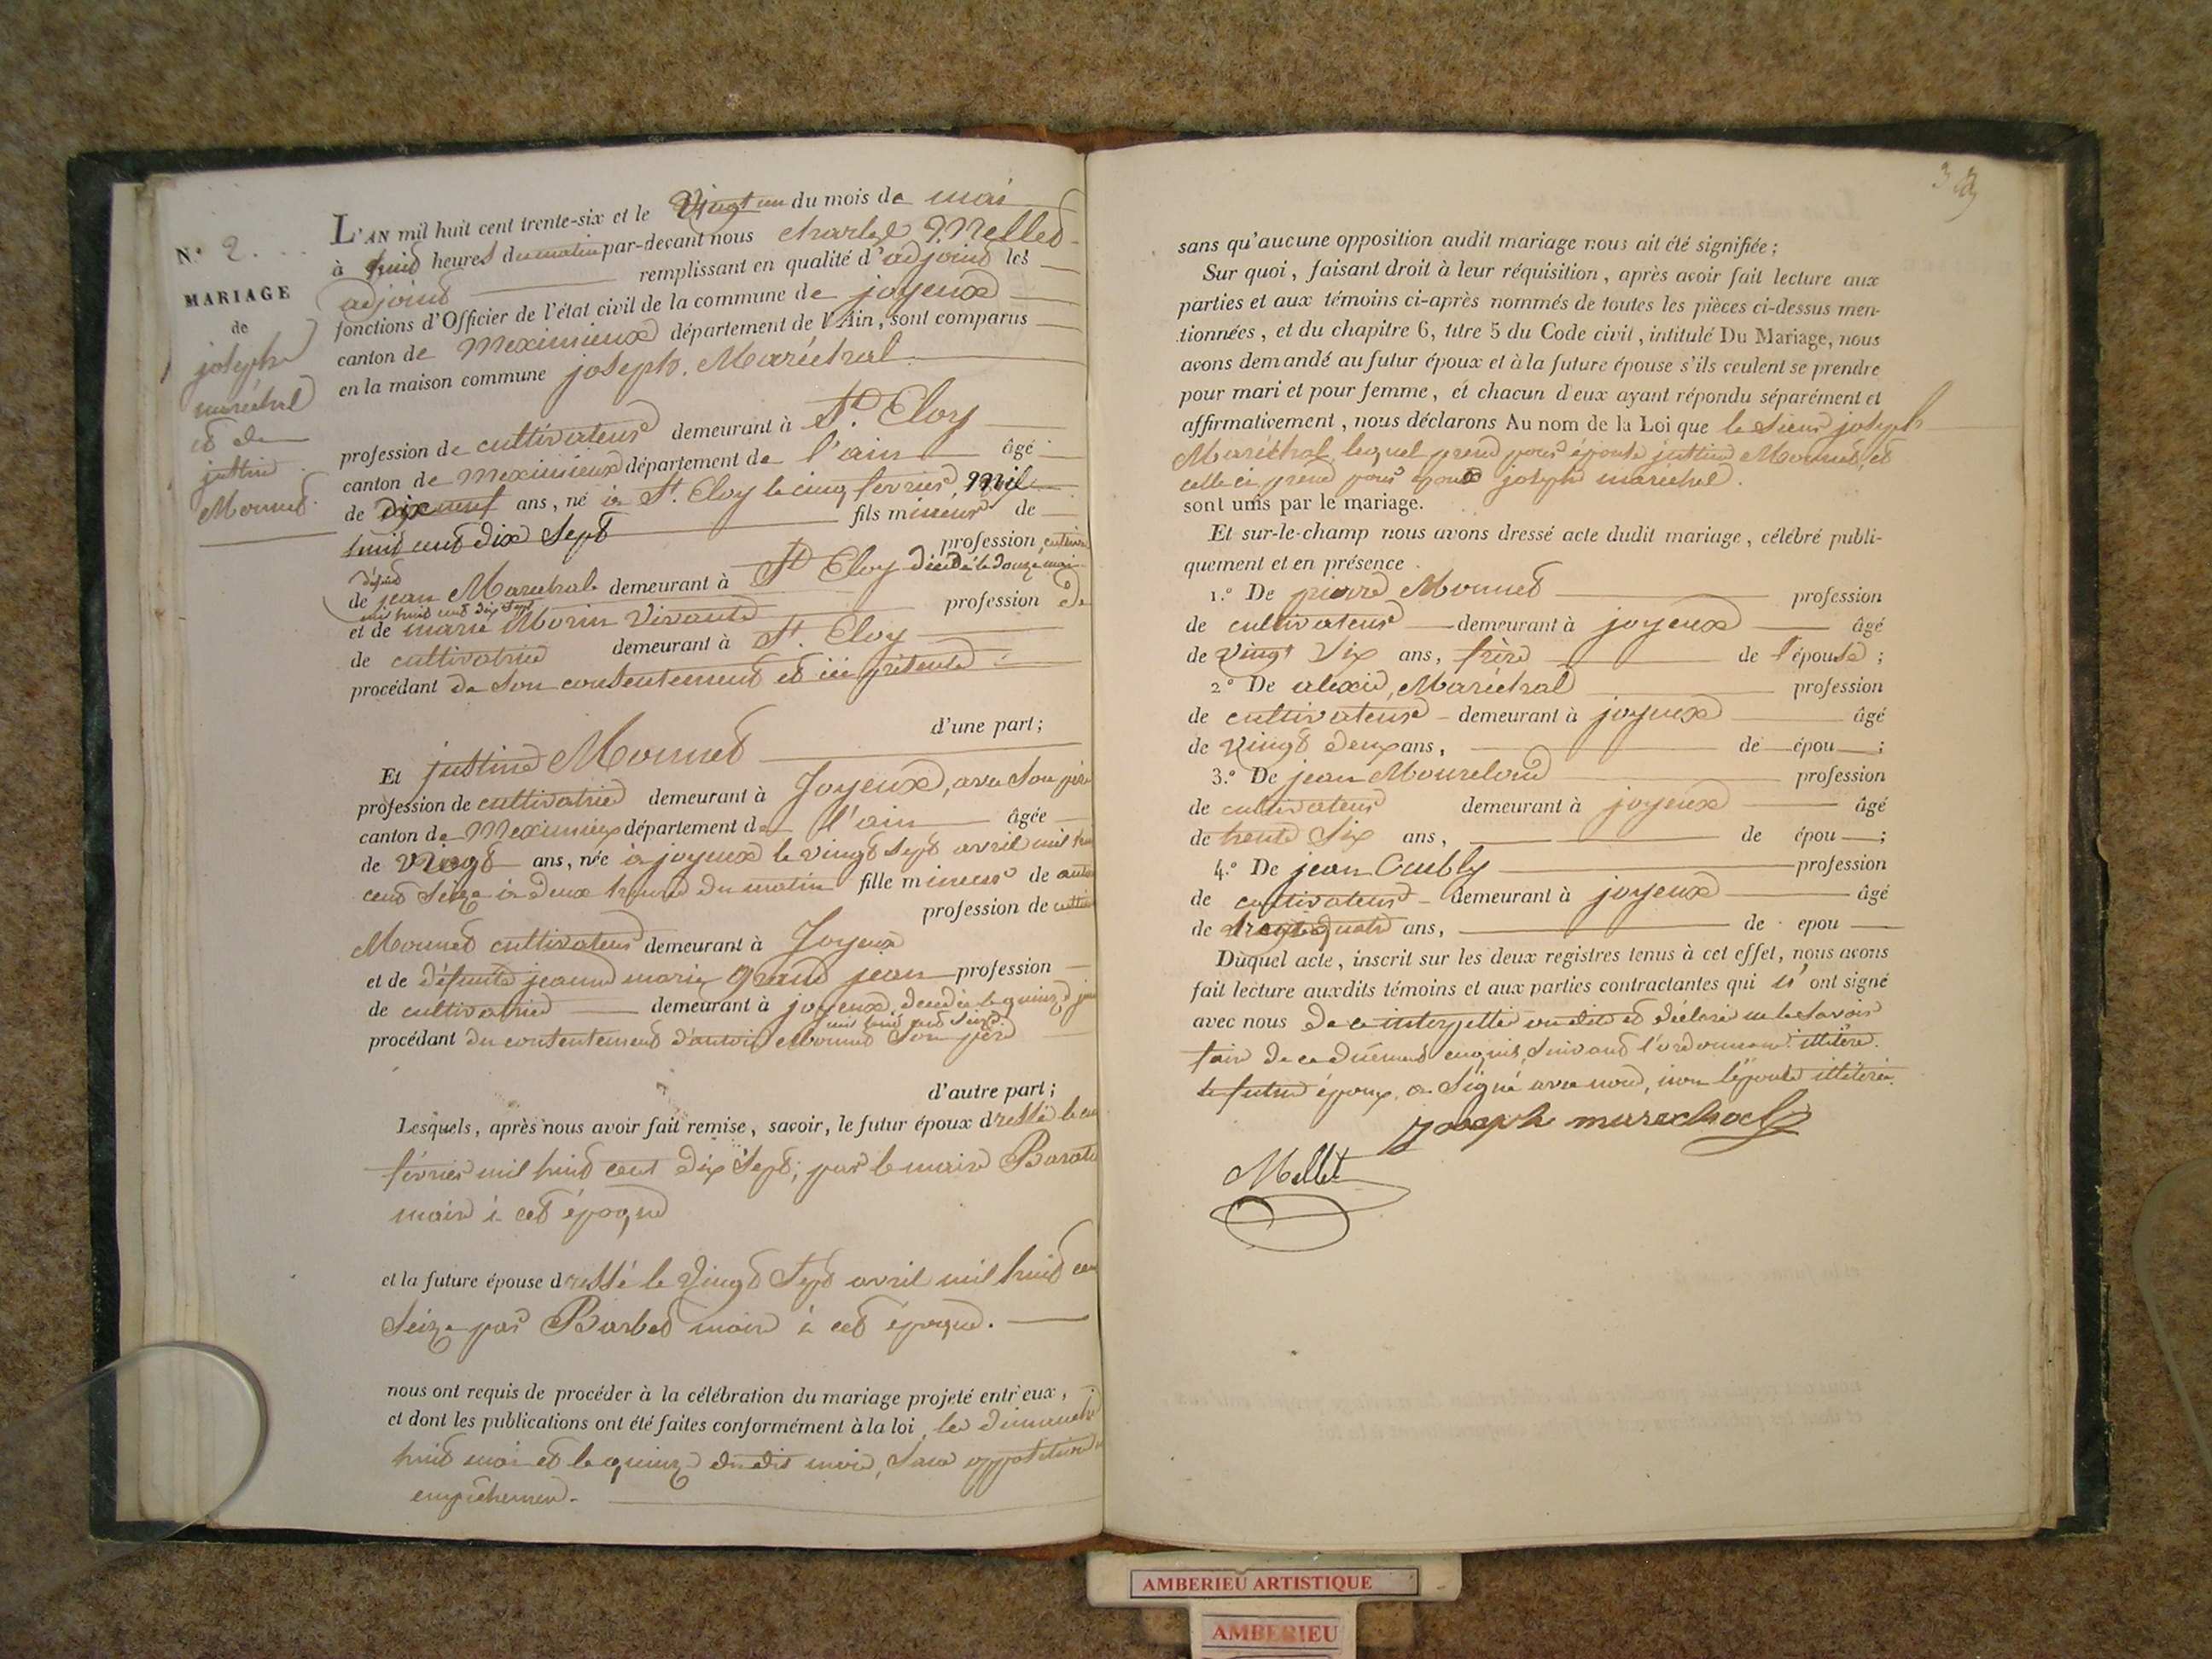 N.º 2.
MARIAGE
de
joseph
maréchal
et de
justine
Monnet
L'AN mil huit cent trente-six et le Vingt un du mois de mai
à huit heures du matin par-devant nous charles Mellet
adjoint remplissant en qualité d'adjoint les
fonctions d'Officier de l'état civil de la commune de joyeux
canton de Meximieux département de l'Ain, sont comparus
en la maison commune joseph Maréchal
profession de cultivateur demeurant à St Eloy
canton de meximieux département de l'ain âgé
de dix neuf ans, né à St. Eloy le cinq fevrier, mil
huit cent dix Sept fils mineur de
profession
défunt
de jean Marechal demeurant à St Eloy décédé le douze mai
mil huit cent dix sept
et de marie Morin Vivante profession de
de cultivatrice demeurant à St. Eloy
procédant de Son consentement et ici présente
d'une part;
Et justine Monnet
profession de cultivatrice demeurant à Joyeux, avec Son père
canton de Meximieux département de l'ain âgée
de vingt ans, née à joyeux le vingt Sept avril mil huit
cent Seize à deux heures du matin fille mineur de
profession de
Monnet cultivateur demeurant à Joyeux
et de défunte jeanne marie Grand jean profession
de cultivatrice demeurant à joyeux, décédée le quinze
mil huit cent Seize
procédant du consentement d'antoine Monnet Son père
d'autre part;
Lesquels, après nous avoir fait remise, savoir, le futur époux dressé le
février mil huit cent dix Sept; par le maire
maire à cet époque
et la future épouse dressé le Vingt Sept avril mil huit cent
Seize par Barbet maire à cet époque.
nous ont requis de procéder à la célébration du mariage projeté entr'eux,
et dont les publications ont été faites conformément à la loi, les dimanche
huit mai et le quinze dudit mois, Sans opposition
empêchement.
sans qu'aucune opposition audit mariage nous ait été signifiée;
Sur quoi, faisant droit à leur réquisition, après avoir fait lecture aux
parties et aux témoins ci-après nommés de toutes les pièces ci-dessus men-
tionnées, et du chapitre 6, titre 5 du Code civil, intitulé Du Mariage, nous
avons demandé au futur époux et à la future épouse s'ils veulent se prendre
pour mari et pour femme, et chacun d'eux ayant répondu séparément et
affirmativement, nous déclarons Au nom de la Loi que le Sieur joseph
Maréchal lequel prend pour épouse justine Monnet, et
celle ci prend pour époux joseph maréchal.
sont unis par le mariage.
Et sur-le-champ nous avons dressé acte dudit mariage, célébré publi-
quement et en présence
1.º De pierre Monnet profession
de cultivateur demeurant à joyeux âgé
de vingt Six ans, frère de l'épouse;
2º De alexis Maréchal profession
de cultivateur demeurant à joyeux âgé
de vingt deux ans, de épou ;
3.º De jean profession
de cultivateur demeurant à joyeux âgé
de trente Six ans, de épou ;
4.º De jean profession
de cultivateur demeurant à joyeux âgé
de quatre ans, de epou
Duquel acte, inscrit sur les deux registres tenus à cet effet, nous avons
fait lecture auxdits témoins et aux parties contractantes qui n'ont signé
avec nous de ce et déclaré ne le Savoir
faire de ce dûement enquis, Suivant l'ordonnance
le futur époux a Signé avec nous, non l'épouse
joseph marechal
Mellet
AMBERIEU ARTISTIQUE
AMBERIEU